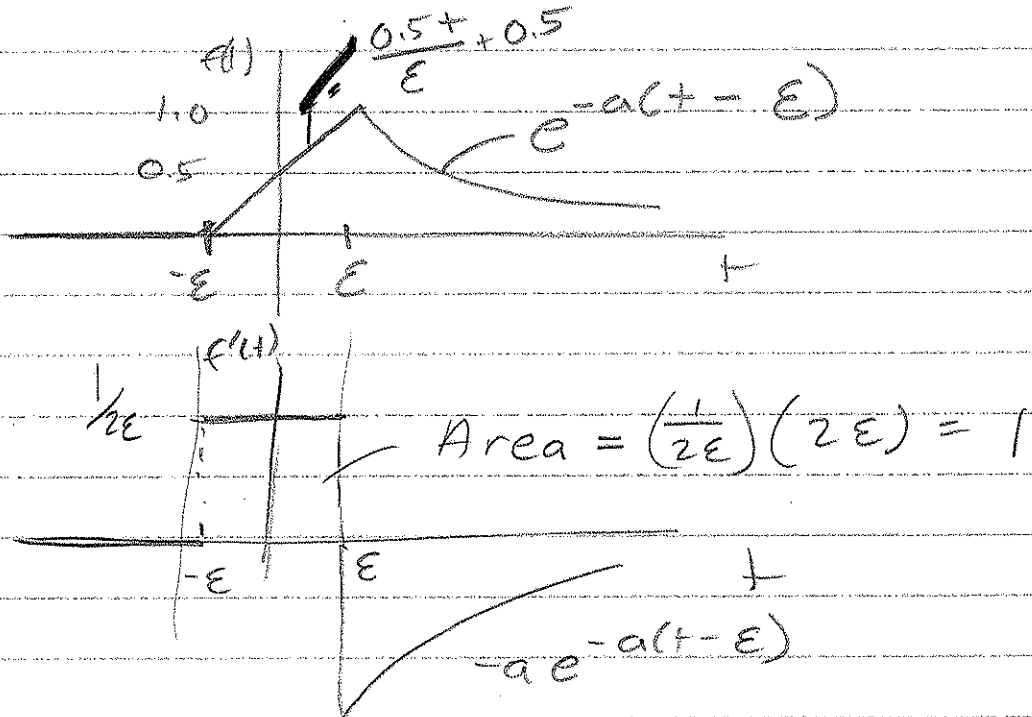 f(t)
0.5t/ε + 0.5
1.0
e^-a(t - ε)
0.5
-ε
ε
t
f'(t)
1/2ε
Area = (1/2ε)(2ε) = 1
-ε
ε
t
-a e^-a(t-ε)